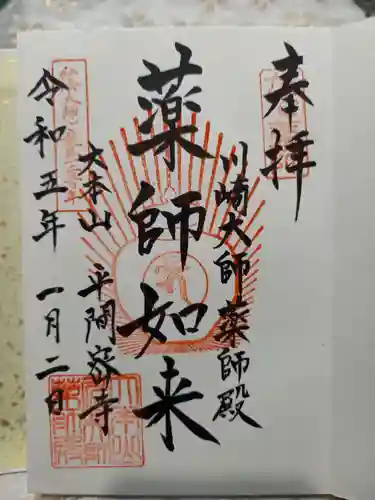 奉拝
川崎大師薬師殿
薬師如来
大本山 平間寺
令和五年 一月二日